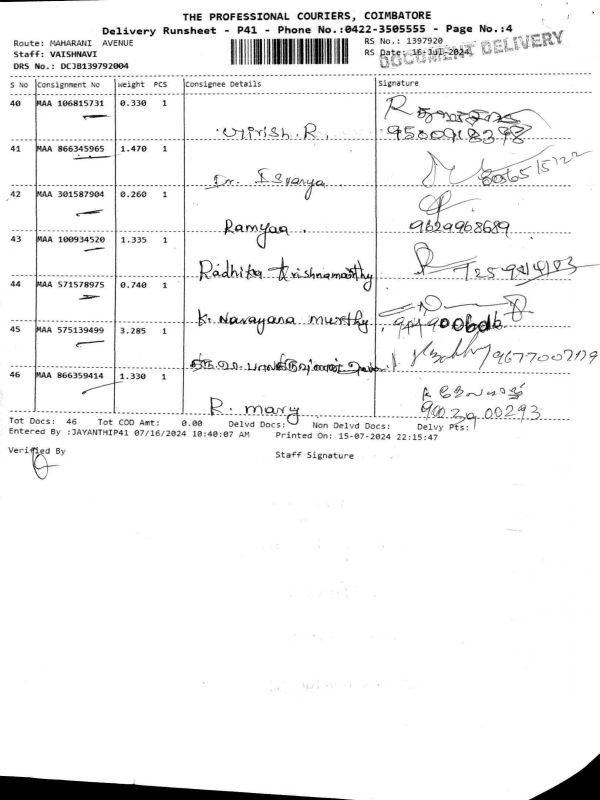 THE PROFESSIONAL COURIERS, COIMBATORE
Delivery Runsheet - P41 - Phone No.:0422-3505555 - Page No.:4
Route: MAHARANI AVENUE RS No.: 1397920
Staff: VAISHNAVI RS Date: 16-Jul-2024
DOCUMENT DELIVERY
DRS No.: DCJB139792004
S No Consignment No Weight PCS Consignee Details Signature
40 MAA 106815731 0.330 1
R.
41 MAA 866345965 1.470 1
Dr. Isvarya
42 MAA 301587904 0.260 1
Ramyaa. 9629968689
43 MAA 100934520 1.335 1
Radhika Krishnamoorthy
44 MAA 571578975 0.740 1
K. Narayana murthy
45 MAA 575139499 3.285 1
9677007129
46 MAA 866359414 1.330 1
R. mary
Tot Docs: 46 Tot COD Amt: 0.00 Delvd Docs: Non Delvd Docs: Delvy Pts:
Entered By :JAYANTHIP41 07/16/2024 10:40:07 AM Printed On: 15-07-2024 22:15:47
Verified By Staff Signature